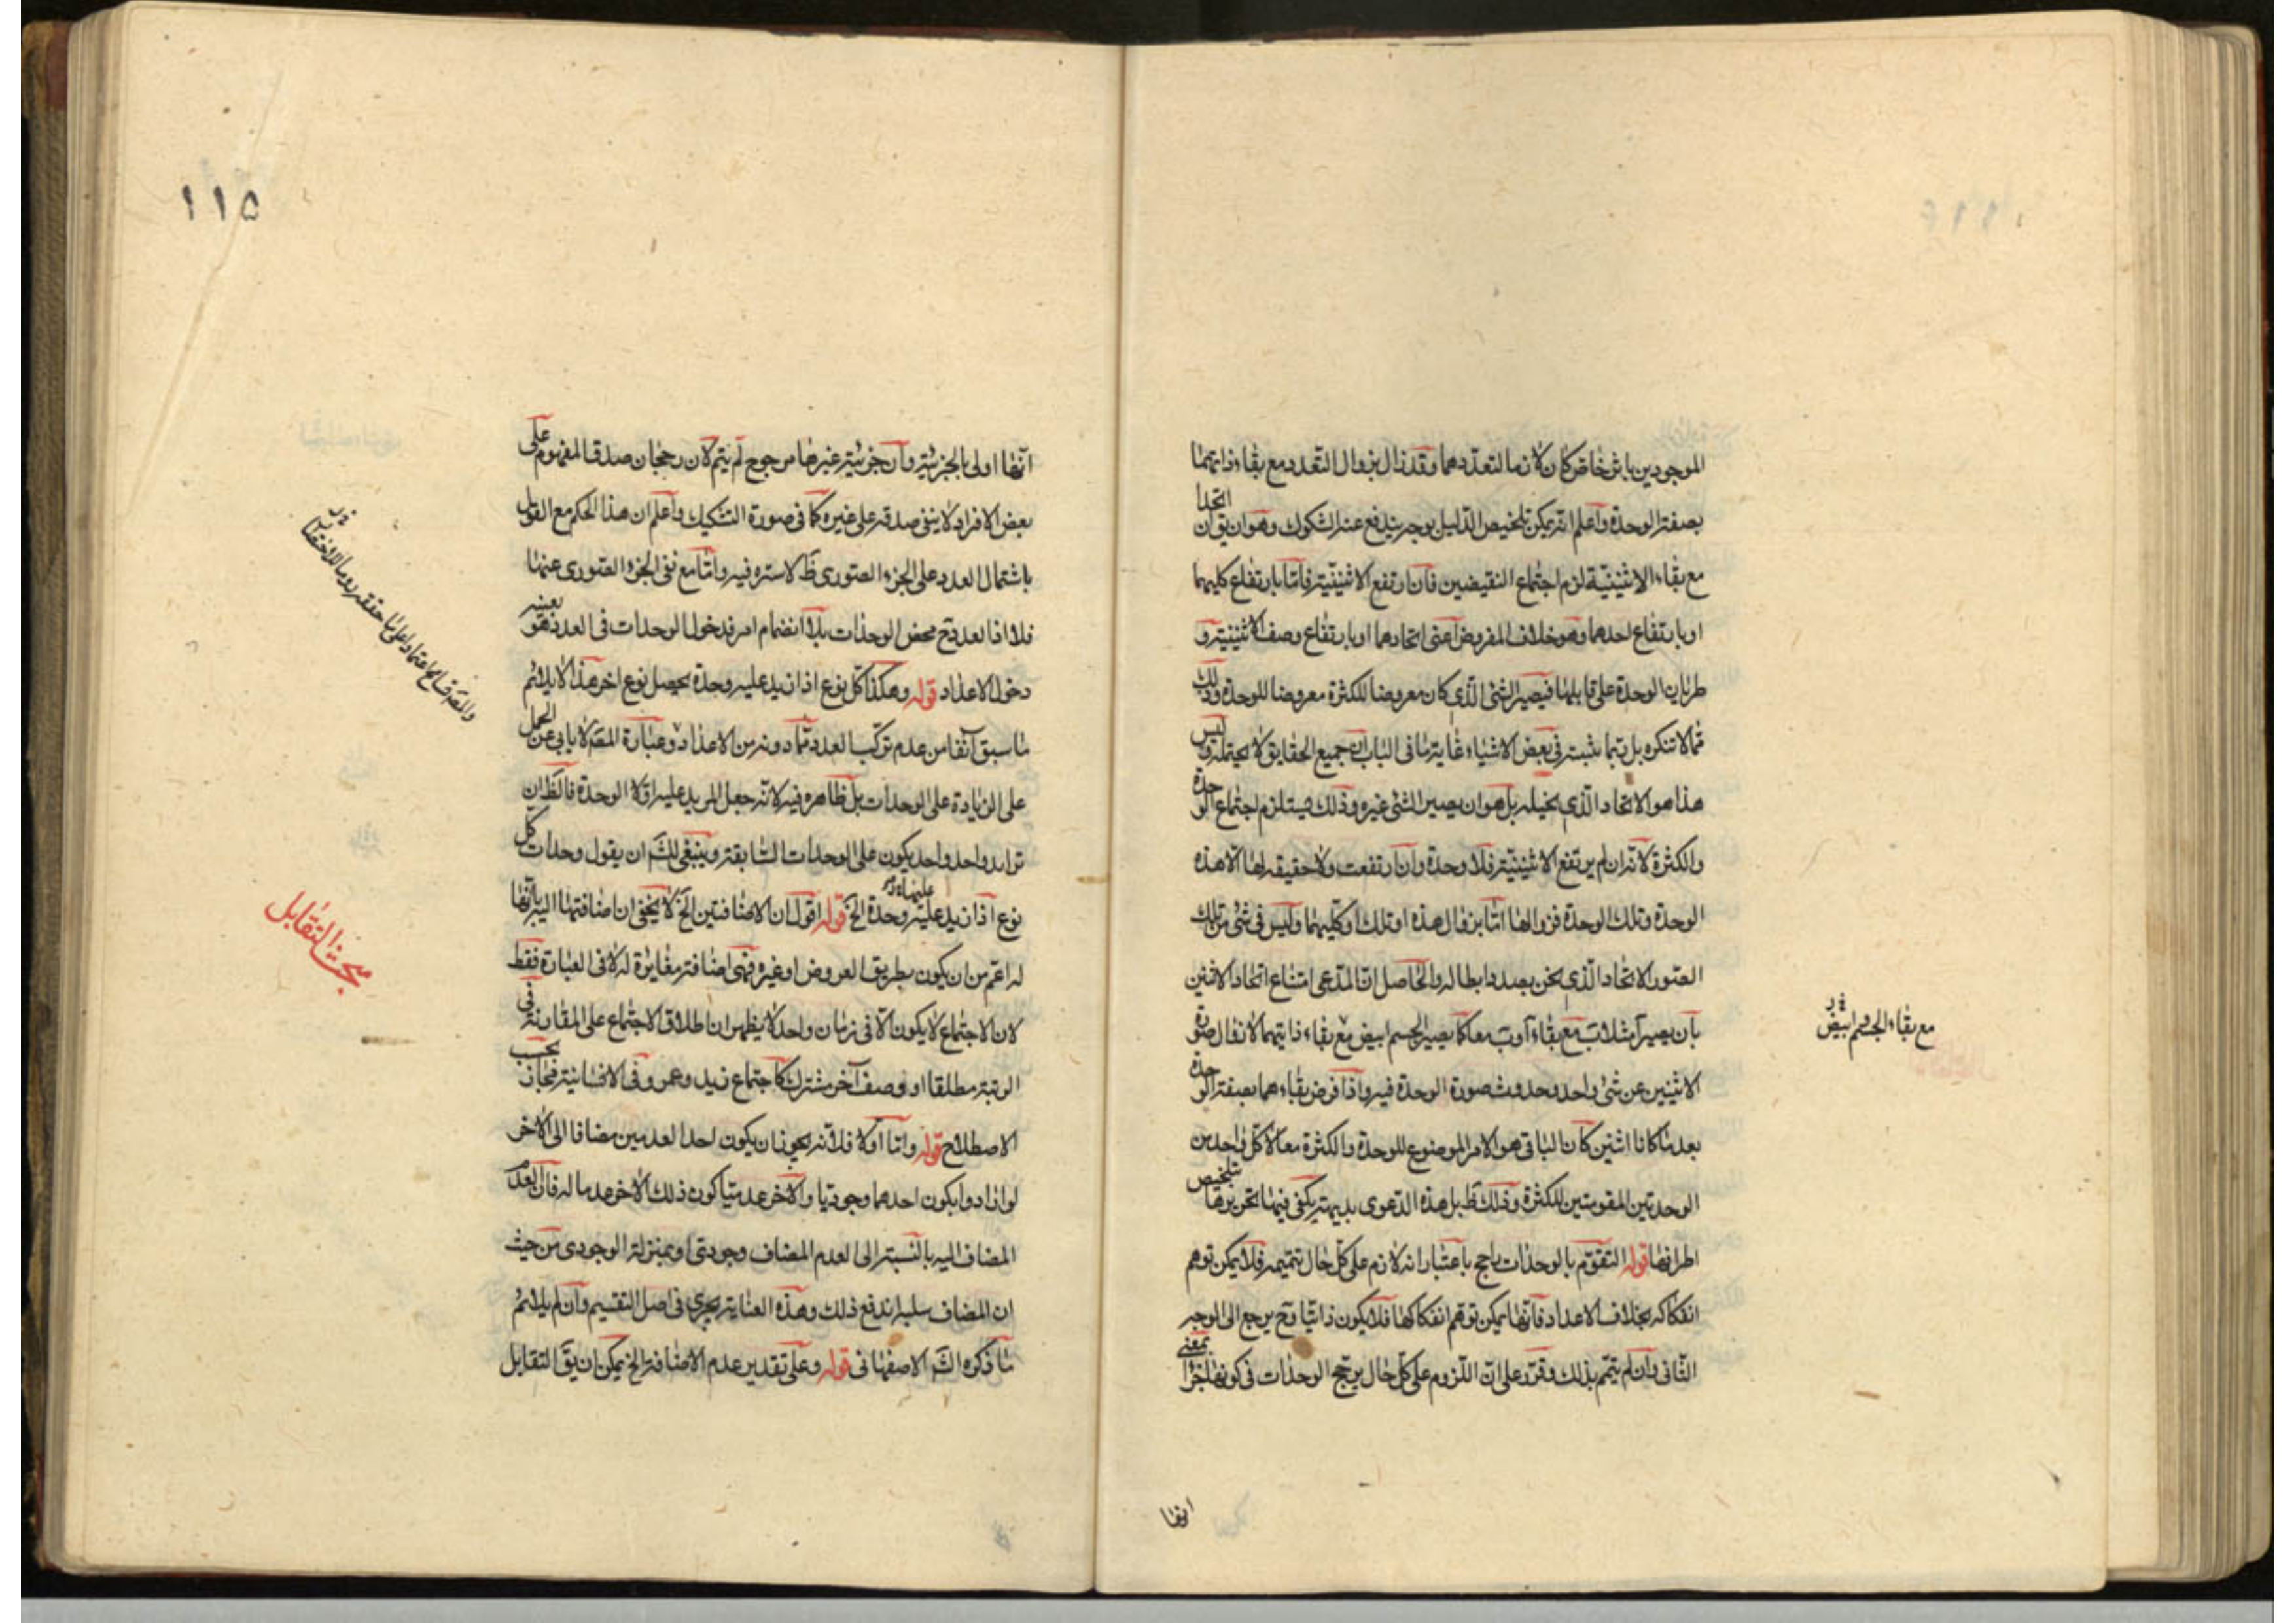 الموجودين باش خاص كان لازما لتعددهما وقد زال بزوال التعدد مع بقاء ذاتيهما
بصفة الوحدة واعلم انه يمكن تلخيص الدليل بوجه يندفع عنه الشكوك وهو ان يق ان اتحدا
مع بقاء الاثنينية لزم اجتماع النقيضين فان ارتفع الاثنينية فاما بارتفاع كليهما
او بارتفاع احدهما وهو خلاف المفروض اعنى اتحادهما او بارتفاع وصف الاثنينية و
طريان الوحدة على قابلهما فيصير الشئ الذي كان معروضا للكثرة معروضا للوحدة وذلك
مما لا تنكره بل ربما نثبته في بعض الاشياء غاية ما في الباب ان جميع الحقايق لا يحتمله وليس
هذا هو الاتحاد الذي يخيله بل هو ان يصير الشئ غيره وذلك يستلزم اجتماع الوحدة
والكثرة لانه ان لم يرتفع الاثنينية فلا وحدة وان ارتفعت ولا حقيقة لها الا هذه
الوحدة وتلك الوحدة فزوالها اما بزوال هذه او تلك او كليهما وليس في شئ من تلك
الصور الاتحاد الذي نحن بصدد ابطاله والحاصل ان المدعى امتناع اتحاد الاثنين
بان يصير آ مثلا ب مع بقاء آ و ب معا كما يصير الجسم ابيض مع بقاء ذاتيهما لانفال صورة
الاثنين عن شئ واحد وحدوث صورة الوحدة فيه واذا فرض بقاءهما بصفة الوحدة
بعد ما كانا اثنين كان الباقى هو الامر الموضوع للوحدة والكثرة معا لا كل واحد من
الوحدتين المقومتين للكثرة وذلك ظ بل هذه الدعوى بديهية يكفى فيها تحريرها تلخيص
اطرافها قوله التقوم بالوحدات راجح باعتبار انه لازم على كل حال تتميمه فلا يمكن توهم
انفكاكه بخلاف الاعداد فانها يمكن توهم انفكاكها فلا يكون ذاتيا وح يرجع الى الوجه
الثانى وان لم يتمم بذلك وقرر على ان اللزوم على كل حال يرجح الوحدات في كونها اجزا بمعنى
مع بقاء الجسم وابيض
انها
١١٥
انها اولى بالجزئية وان جزئية غيرها مرجوح لم يتم لان رجحان صدق المفهوم على
بعض الافراد لا ينفى صدقه على غيره كما في صورة التشكيك واعلم ان هذا الحكم مع القول
باشتمال العدد على الجزء الصورى ظ لا ستره فيه واما مع نفى الجزء الصورى عنها
فلا اذ العدد ح محض الوحدات بلا انضمام امر فدخول الوحدات في العدد هو بعينه
دخول الاعداد قوله وهكذا كل نوع اذا زيد عليه وحدة يحصل نوع اخر هذا لا يلائم
ما سبق آنفا من عدم تركب العدد مما دونه من الاعداد وعبارة المص لا يابى عن الحمل
على الزيادة على الوحدات بل ظاهره فيه لانه جعل المزيد عليه اولا الوحدة فالظ ان
تزايد واحد واحد يكون على الوحدات السابقة وينبغى للش ان يقول وحدات كل
نوع اذا زيد عليها وحدة الخ قوله اقول ان الاضافتين الخ لا يخفى ان اضافتها اليه بانها
له اعم من ان يكون بطريق العروض او غيره فهى اضافة مغايرة له لا في العبارة فقط
لان الاجتماع لا يكون الا في زمان واحد لا يظهر ان اطلاق الاجتماع على المقارنة في
الرتبة مطلقا او وصف آخر مشترك كاجتماع زيد وعمرو في الانسانية مجاز بحسب
الاصطلاح قوله واما اولا فلانه يجوز ان يكون احد العدمين مضافا الى الاخر
لو ارادوا بكون احدهما وجوديا والاخر عدميا كون ذلك الاخر عدما له فان العدم
المضاف اليه بالنسبة الى العدم المضاف وجودى او بمنزلة الوجودى من حيث
ان المضاف سلبه اندفع ذلك وهذه العناية يجرى في اصل التقسيم وان لم يلائم
ما ذكره الش الاصفهانى قوله وعلى تقدير عدم الاضافة الخ يمكن ان يق التقابل
مبحث التقابل